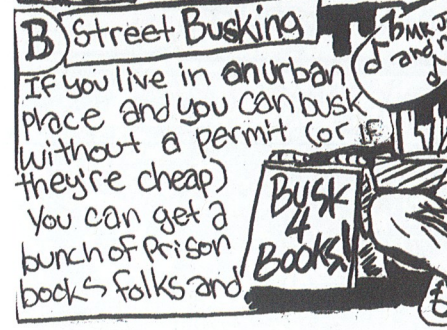 B Street Busking
If you live in an urban
place and you can busk
without a permit (or if
they're cheap)
You can get a
bunch of prison
books folks and
BUSK
4
BOOKS!
and